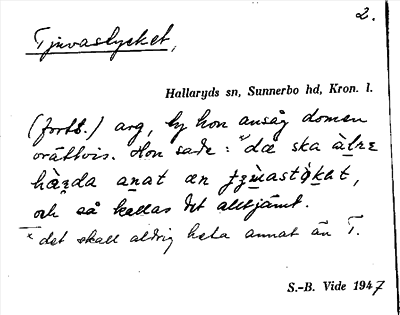 2.
Tjuvastycket,
Hallaryds sn, Sunnerbo hd, Kron. l.
(forts.) arg, ty hon ansåg domen
orättvis. Hon sade: "dæ ska
anat æn
och så kallas det alltjämt.
* det skall aldrig heta annat än T.
S.-B. Vide 1947